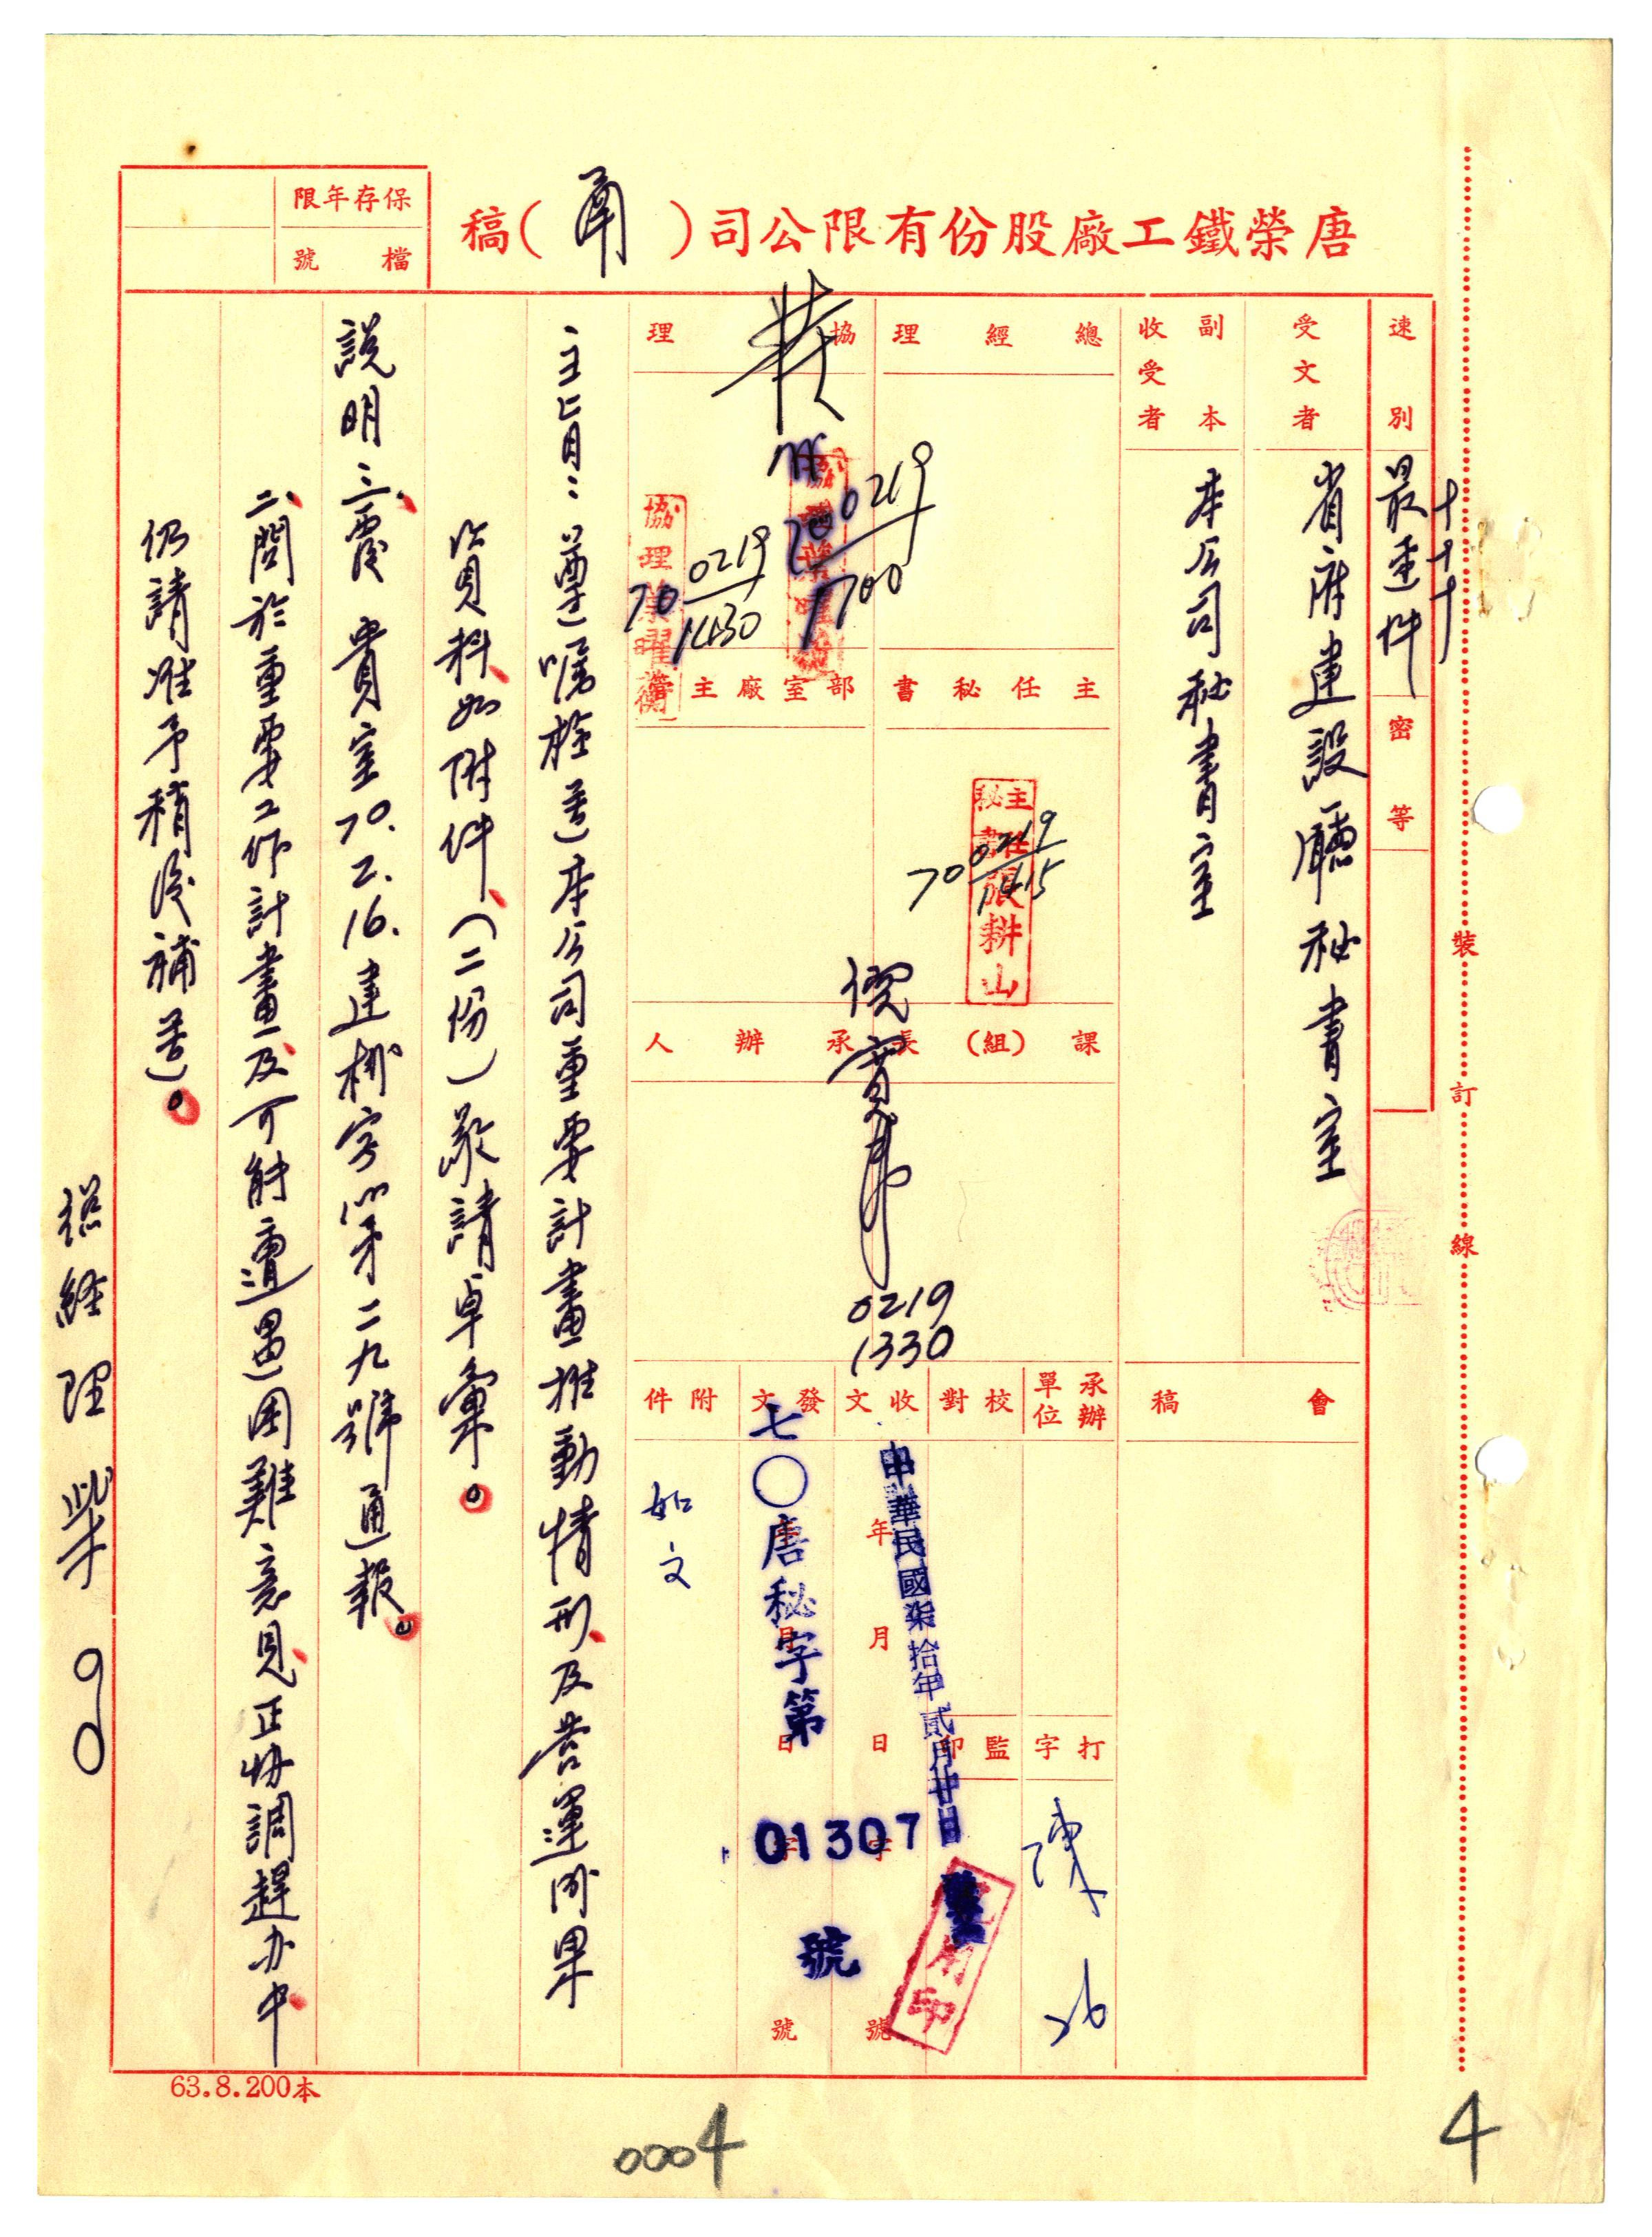 唐榮鐵工廠股份有限公司（函）稿
保存年限
檔號
速別
最速件
密等
受文者
省府建設廳秘書室
副本收受者
本公司秘書室
會稿
總經理
協理
0219
1700
70 0219
1430
主任秘書
部室廠主管
主任秘書張耕山
70 0219
1415
課（組）長
承辦人
0219
1330
承辦單位
校對
收文
發文
附件
年月日字號
中華民國柒拾年貳月廿日
七〇唐秘字第
01307
號
如文
打字
監印
陳
主旨：遵囑檢送本公司重要計畫推動情形及營運成果
資料如附件（二份）敬請卓彙。
說明：一、復貴室70.2.16.建秘字第二九號通報。
二、關於重要工作計畫及可能遭遇困難意見、正協調趕办中、
仍請准予稍後補送。
總經理 柴
裝
訂
線
63.8.200本
0004
4